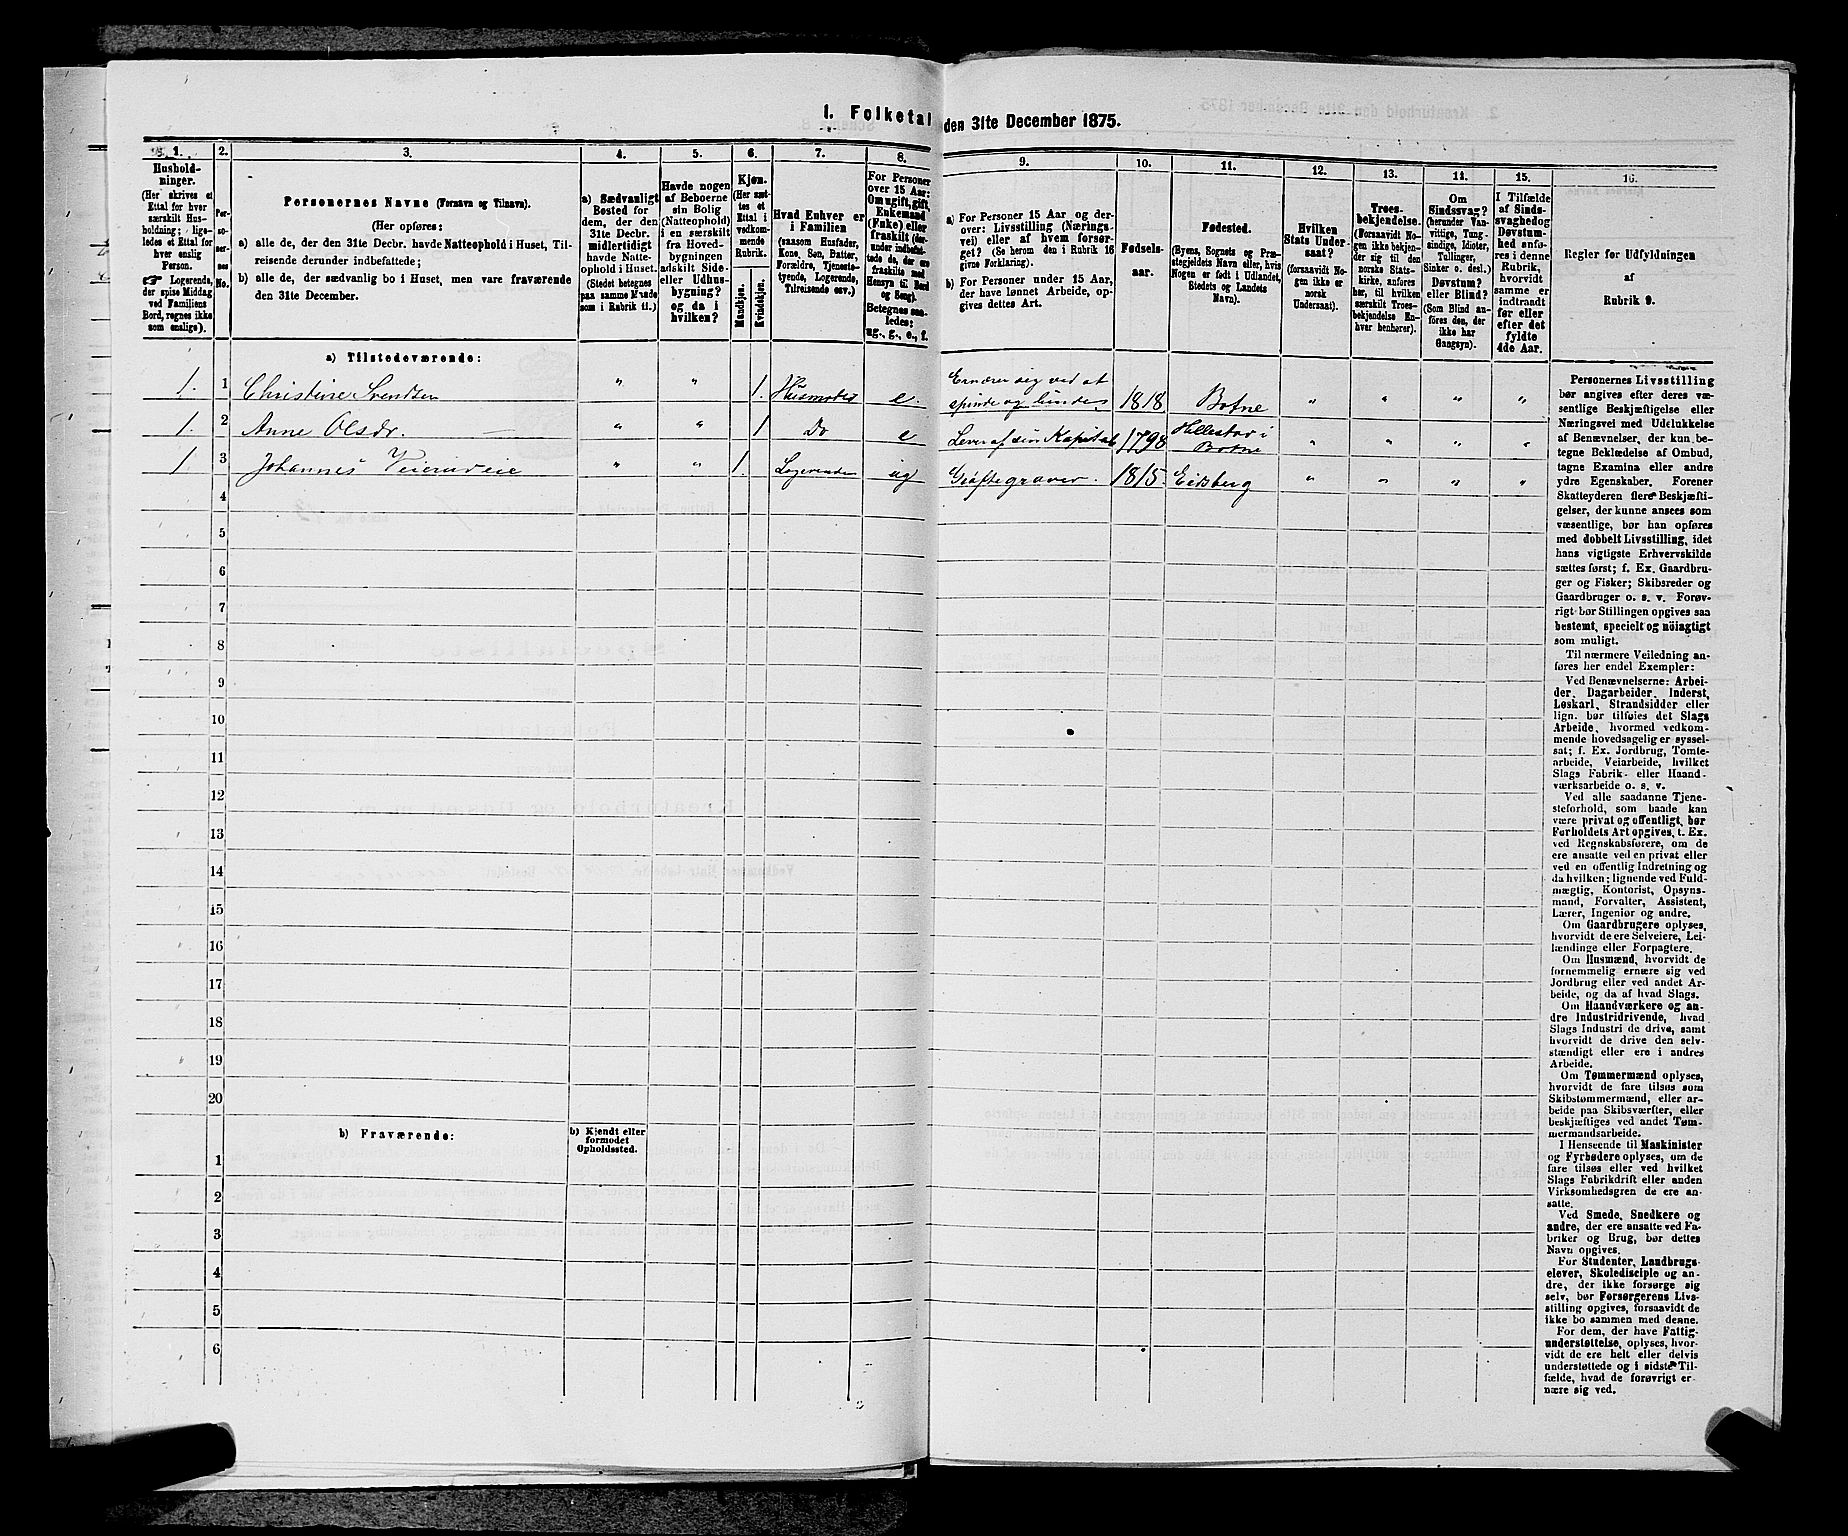 1. Folketal den 31te December 1875.
1.
Hushold-
ninger.
(Her skrives et
Ettal for hver
særskilt Hus-
holdning; lige-
ledes et Ettal for
hver enslig
Person.
☞ Logerende,
der spise Middag
ved Familiens
Bord, regnes ikke
som enslige).
2.
Per-
so-
ner-
nes
No.
3.
Personernes Navne (Fornavn og Tilnavn).
(Her opføres:
a) alle de, der den 31te Decbr. havde Natteophold i Huset, Til-
reisende derunder indbefattede;
b) alle de, der sædvanlig bo i Huset, men vare fraværende
den 31te December.
4.
a) Sædvanligt
Bosted for
dem, der den
31te Decbr.
midlertidigt
havde Natte-
ophold i Huset.
(Stedet betegnes
paa samme Maade
som i Rubrik 11.)
5.
Havde nogen
af Beboerne
sin Bolig
(Natteophold)
i en særskilt
fra Hoved-
bygningen
adskilt Side-
eller Udhus-
bygning?
og da i
hvilken?
6.
Kjøn.
(Her sæt-
tes et
Ettal i
vedkom-
mende
Rubrik.
Mandkjøn.
Kvindekjøn.
7.
Hvad Enhver er
i Familien
(saasom Husfader,
Kone, Søn, Datter,
Forældre, Tjeneste-
tyende, Logerende,
Tilreisende osv.)
8.
For Personer
over 15 Aar:
Om ugift, gift,
Enkemand
(Enke) eller
fraskilt (der-
under indbefat-
tede de, der ere
fraskilte med
Hensyn til Bord
og Seng).
Betegnes saa-
ledes:
ug., g., e., f.
9.
a) For Personer 15 Aar og der-
over: Livsstilling (Nærings-
vei) eller af hvem forsør-
get? (Se herom den i Rubrik 16
givne Forklaring).
b) For Personer under 15 Aar,
der have lønnet Arbeide, op-
gives dettes Art.
10.
Fødsels-
aar.
11.
Fødested.
(Byens, Sognets og Præ-
stegjeldets Navn eller, hvis
Nogen er født i Udlandet,
Stedets og Landets
Navn).
12.
Hvilken
Stats Under-
saat?
(forsaavidt No-
gen ikke er
norsk
Undersaat).
13.
Troes-
bekjendelse.
(Forsaavidt No-
gen ikke bekjen-
der sig til den
norske Stats-
kirke, anføres
her, til hvilken
særskilt Troes-
bekjendelse En-
hver henhører).
14.
Om
Sindssvag?
(herunder Van-
vittige, Tung-
sindige, Idioter,
Tullinger,
Sinker o. desl.)
Døvstum?
eller Blind?
(Som Blind an-
føres den, der
ikke har
Gangsyn).
15.
I Tilfælde
af Sinds-
svaghed og
Døvstum-
hed anfø-
res i denne
Rubrik,
hvorvidt
samme er
indtraadt
før eller
efter det
fyldte
4de Aar.
16.
Regler for Udfyldningen
af
Rubrik 9.
a) Tilstedeværende:
1. 1 Christine Svendsen " " 1. Husmoder e Ernærer sig ved at
spinde og binde 1818 Botne " " " "
1. 2 Anne Olsdr. " " 1 Do e Lever af sin Kapital 1798 Hillestad i
Botne " " " "
1 3 Johannes " " 1. Logerende ug Grøftegraver. 1815. Eidsberg " " " "
4
5
6
7
8
9
10
11
12
13
14
15
16
17
18
19
20
b) Fraværende:
b) Kjendt eller
formodet
Opholdssted.
1
2
3
4
5
6
Personernes Livsstilling
bør angives efter deres væ-
sentlige Beskjæftigelse eller
Næringsvei med Udelukkelse
af Benævnelser, der kun be-
tegne Beklædelse af Ombud,
tagne Examina eller andre
ydre Egenskaber. Forener
Skatteyderen flere Beskjæfti-
gelser, der kunne ansees som
væsentlige, bør han opføres
med dobbelt Livsstilling, idet
hans vigtigste Erhvervskilde
sættes først; f. Ex. Gaardbru-
ger og Fisker; Skibsreder og
Gaardbruger o. s. v. Forøv-
rigt bør Stillingen opgives saa
bestemt, specielt og nöiagtigt
som muligt.
Til nærmere Veiledning an-
føres her endel Exempler:
Ved Benævnelserne: Arbei-
der, Dagarbeider, Inderst,
Løskarl, Strandsidder eller
lign. bør tilføies det Slags
Arbeide, hvormed vedkom-
mende hovedsagelig er syssel-
sat; f. Ex. Jordbrug, Tomte-
arbeide, Veiarbeide, hvilket
Slags Fabrik- eller Haand-
værksarbeide o. s. v.
Ved alle saadanne Tjene-
steforhold, som baade kan
være privat og offentligt, bør
Forholdets Art opgives, t. Ex.
ved Regnskabsførere, om de
ere ansatte ved en privat eller
ved en offentlig Indretning og
da hvilken; lignende ved Fuld-
mægtig, Kontorist, Opsyns-
mand, Forvalter, Assistent,
Lærer, Ingeniør og andre.
Om Gaardbrugere oplyses,
hvorvidt de ere Selveiere, Lei-
lændinge eller Forpagtere.
Om Husmænd, hvorvidt de
fornemmelig ernære sig ved
Jordbrug eller ved andet Ar-
beide, og da af hvad Slags.
Om Haandværkere og an-
dre Industridrivende, hvad
Slags Industri de drive, samt
hvorvidt de drive den selv-
stændigt eller ere i andres
Arbeide.
Om Tømmermænd oplyses,
hvorvidt de fare tilsøs som
Skibstømmermænd, eller ar-
beide paa Skibsværfter, eller
beskjæftiges ved andet Tøm-
mermandsarbeide.
I Henseende til Maskinister
og Fyrbødere oplyses, om de
fare tilsøs eller ved hvilket
Slags Fabrikdrift eller anden
Virksomhedsgren de ere an-
satte.
Ved Smede, Snedkere og
andre, der ere ansatte ved Fa-
briker og Brug, bør dettes
Navn opgives.
For Studenter, Landbrugs-
elever, Skoledisciple og an-
dre, der ikke forsørge sig
selv, bør Forsørgerens Livs-
stilling opgives, forsaavidt de
ikke bo sammen med denne.
For dem, der have Fattig-
understøttelse, oplyses, hvor-
vidt de ere helt eller delvis
understøttede og i sidste Til-
fælde, hvad de forøvrigt er-
nære sig ved.